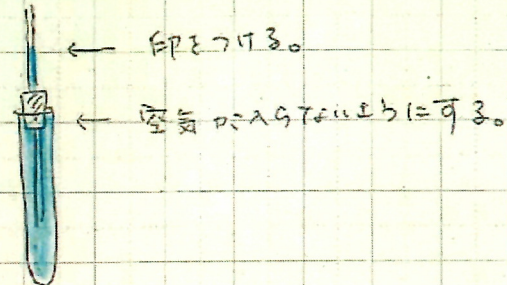 印をつける。
空気が入らないようにする。